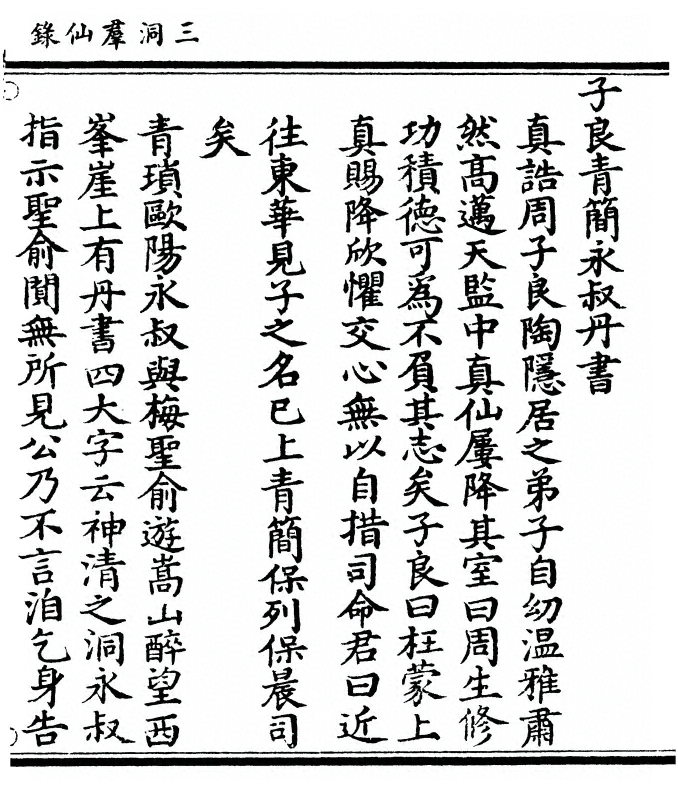 三洞羣仙錄
子良青簡永叔丹書
真誥周子良陶隱居之弟子自幼温雅肅
然高邁天監中真仙屢降其室曰周生修
功積德可為不負其志矣子良曰枉蒙上
真賜降欣懼交心無以自措司命君曰近
往東華見子之名已上青簡保列保晨司
矣
青瑣歐陽永叔與梅聖俞遊嵩山醉望西
峯崖上有丹書四大字云神清之洞永叔
指示聖俞聞無所見公乃不言洎乞身告